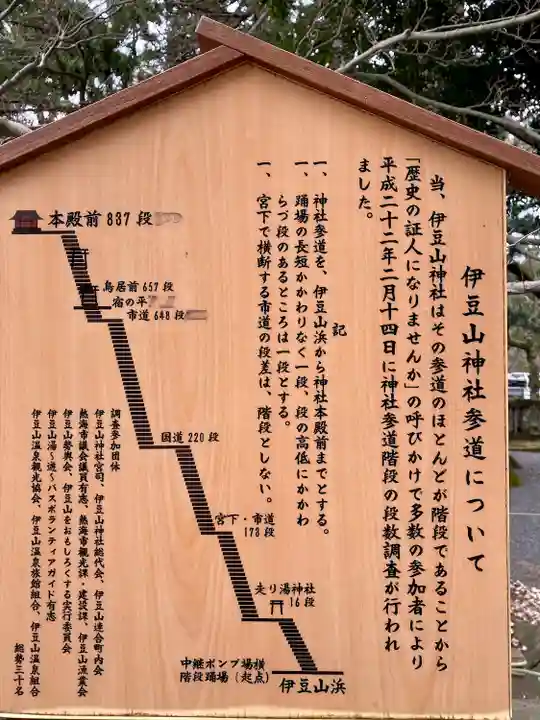 伊豆山神社参道について
当、伊豆山神社はその参道のほとんどが階段であることから
「歴史の証人になりませんか」の呼びかけで多数の参加者により
平成二十二年二月十四日に神社参道階段の段数調査が行われ
ました。
記
一、神社参道を、伊豆山浜から神社本殿前までとする。
一、踊場の長短かかわりなく一段、段の高低にかかわ
らづ段のあるところは一段とする。
一、宮下で横断する市道の段差は、階段としない。
本殿前837段
鳥居前657段
宿の平
市道648段
国道220段
宮下・市道
173段
走り湯神社
16段
中継ポンプ場横
階段踊場（起点）
伊豆山浜
調査参加団体
伊豆山神社宮司、伊豆山神社総代会、伊豆山連合町内会
熱海市議会議員有志、熱海市観光課・建設課、伊豆山漁業会
伊豆山勢輿会、伊豆山をおもしろくする実行委員会
伊豆山湯〜遊〜バスボランティアガイド有志
伊豆山温泉観光協会、伊豆山温泉旅館組合、伊豆山温泉組合
総勢三十名